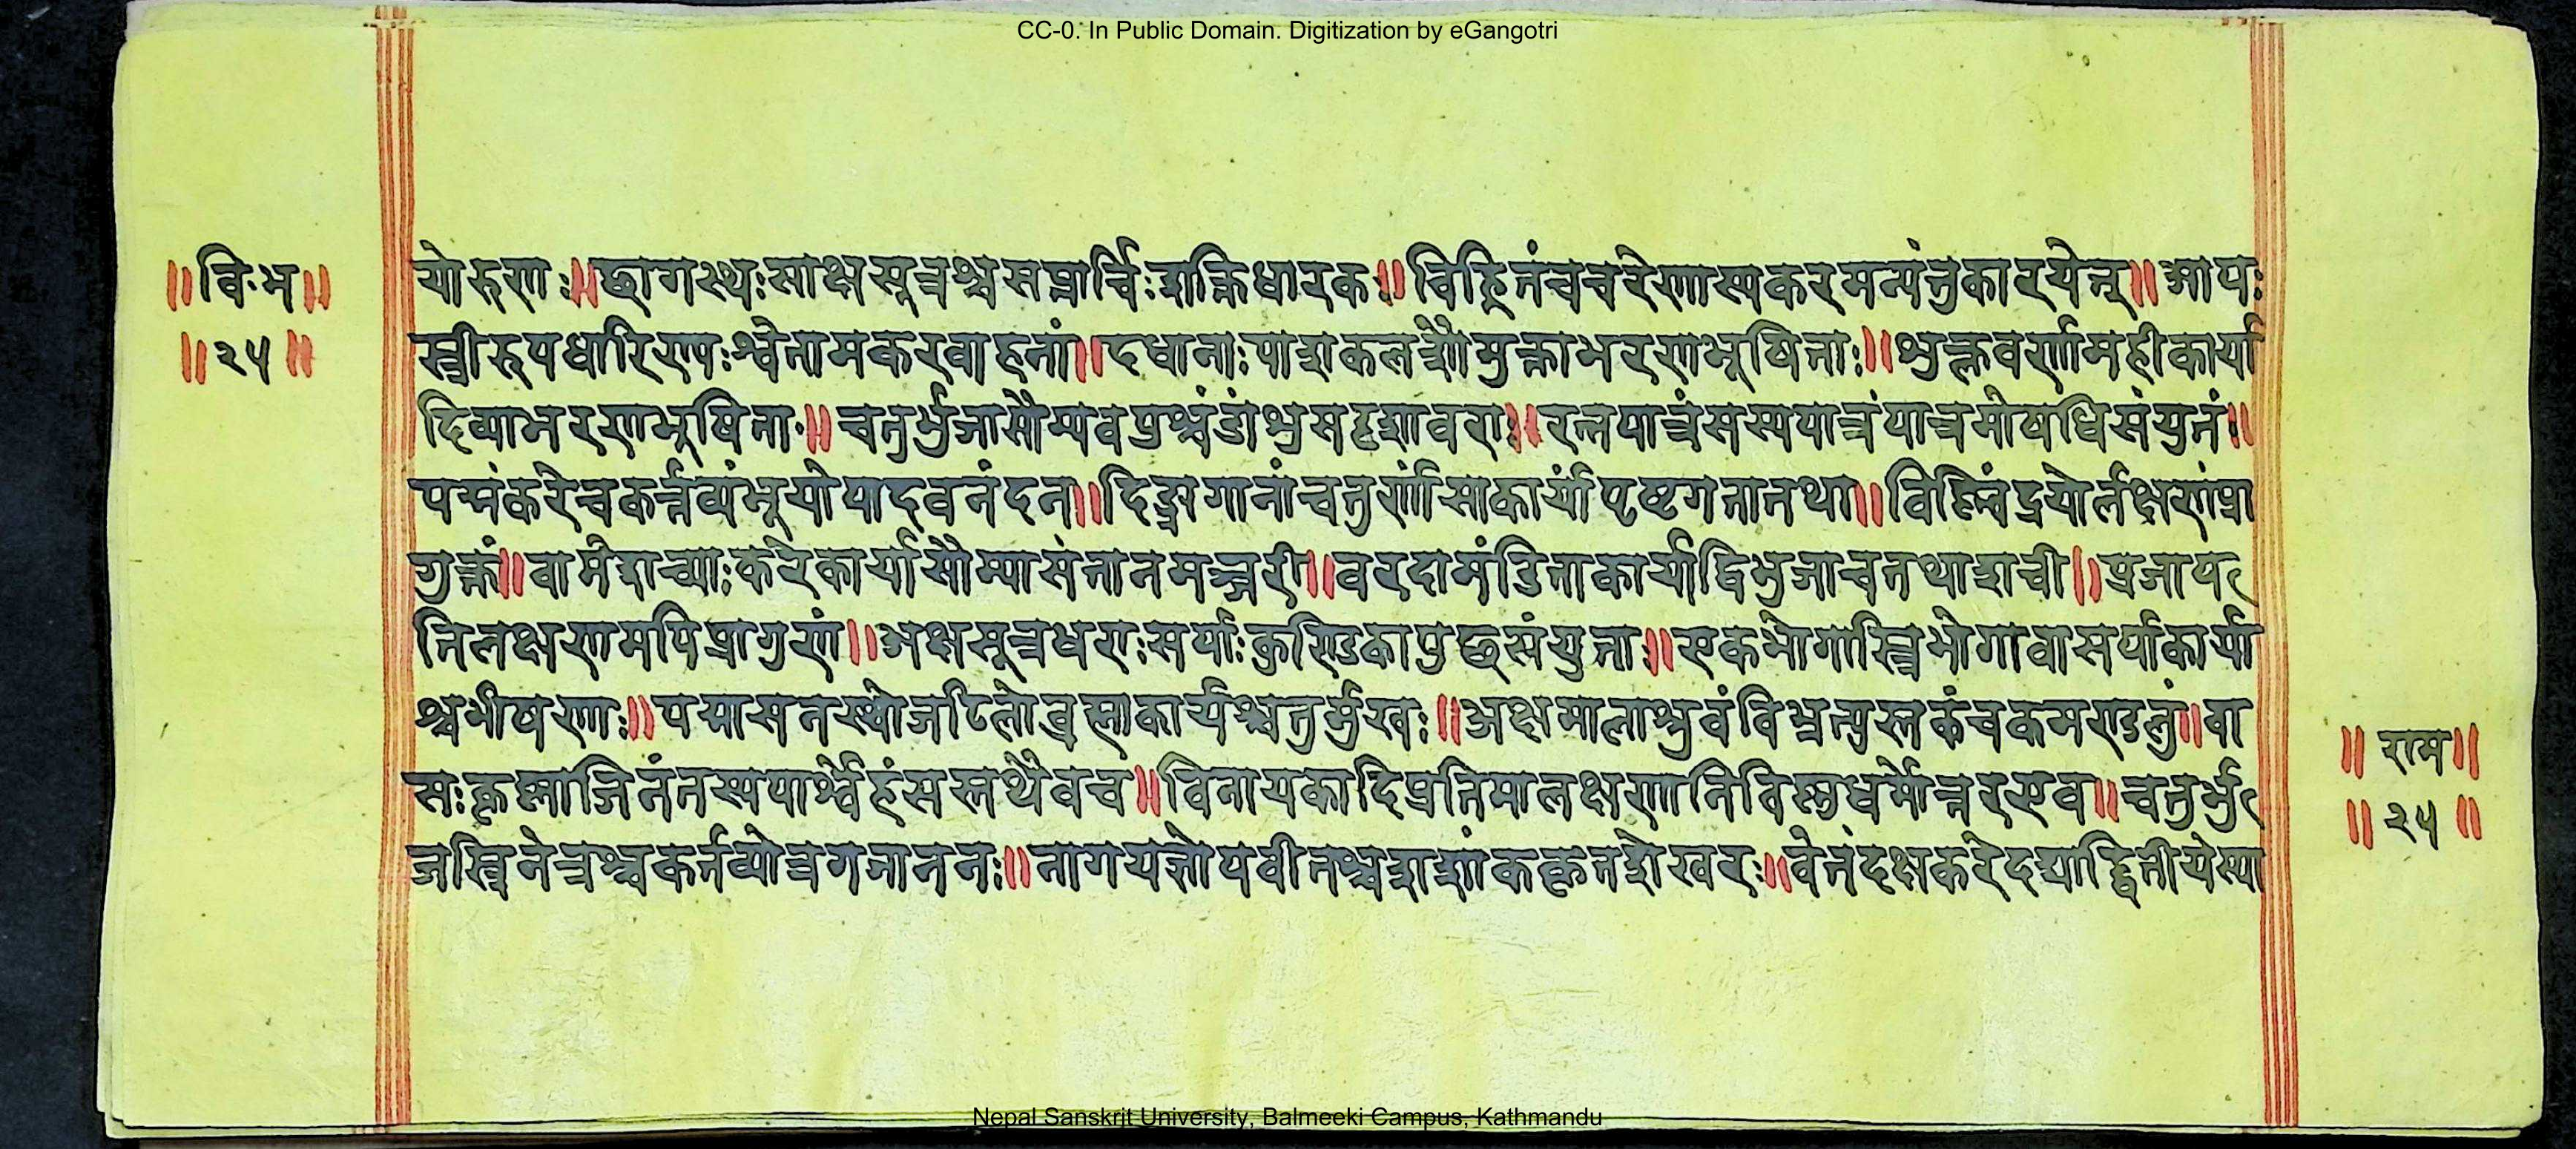 CC-0. In Public Domain. Digitization by eGangotri
॥वि.भ॥
॥२५॥
योरुणः॥छागस्थःसाक्षसूत्रश्चसप्तार्चिःशक्तिधारकः॥विहितंचचरेणास्यकरमन्यंतुकारयेत्॥आपः
स्त्रीरूपधारिण्यःश्वेतामकरवाहनां॥दधानाःपाशकलशौमुक्ताभरणभूषिताः॥शुक्लवर्णामहीकार्या
दिव्याभरणभूषिता॥चतुर्भुजासौम्यवपुश्चंडांशुसदृशावरा॥रत्नपात्रंसस्यपात्रंपात्रमोषधिसंयुतं॥
पद्मंकरेचकर्त्तव्यंभूयोपादवनंदन॥दिङ्गागानांचतुर्णांसाकार्यापृष्टगतातथा॥विहिचंद्रयोर्लक्षणंप्रा
गुक्तं॥वामेशच्याःकरेकार्यासौम्यासंतानमञ्जरी॥वरदामंडिताकार्याद्विभुजाचतथाशची॥प्रजाप
तिलक्षणमपिप्रागुणं॥अक्षसूत्रधराःसर्पाःकुण्डिकापुछसंयुताः॥एकभोगास्त्रिभोगावासर्पाकार्या
श्चभीषणाः॥पद्मासनस्थोजटिलोब्रह्माकार्यश्चतुर्मुखः॥अक्षमालाश्रुवंविभ्रत्पुस्तकंचकमण्डलुं॥वा
सःकृष्णाजिनंतस्यपार्श्वेहंसस्तथैवच॥विनायकादिप्रतिमालक्षणानिविष्णुधर्मोत्तरएव॥चतुर्भु
जस्त्रिनेत्रश्चकर्तव्योत्रगजाननः॥नागयज्ञोपवीतश्चशशांककृतशेखरः॥वेतंदक्षकरेदद्याद्द्वितीयेस्या
॥राम॥
॥२५॥
Nepal Sanskrit University, Balmeeki Campus, Kathmandu